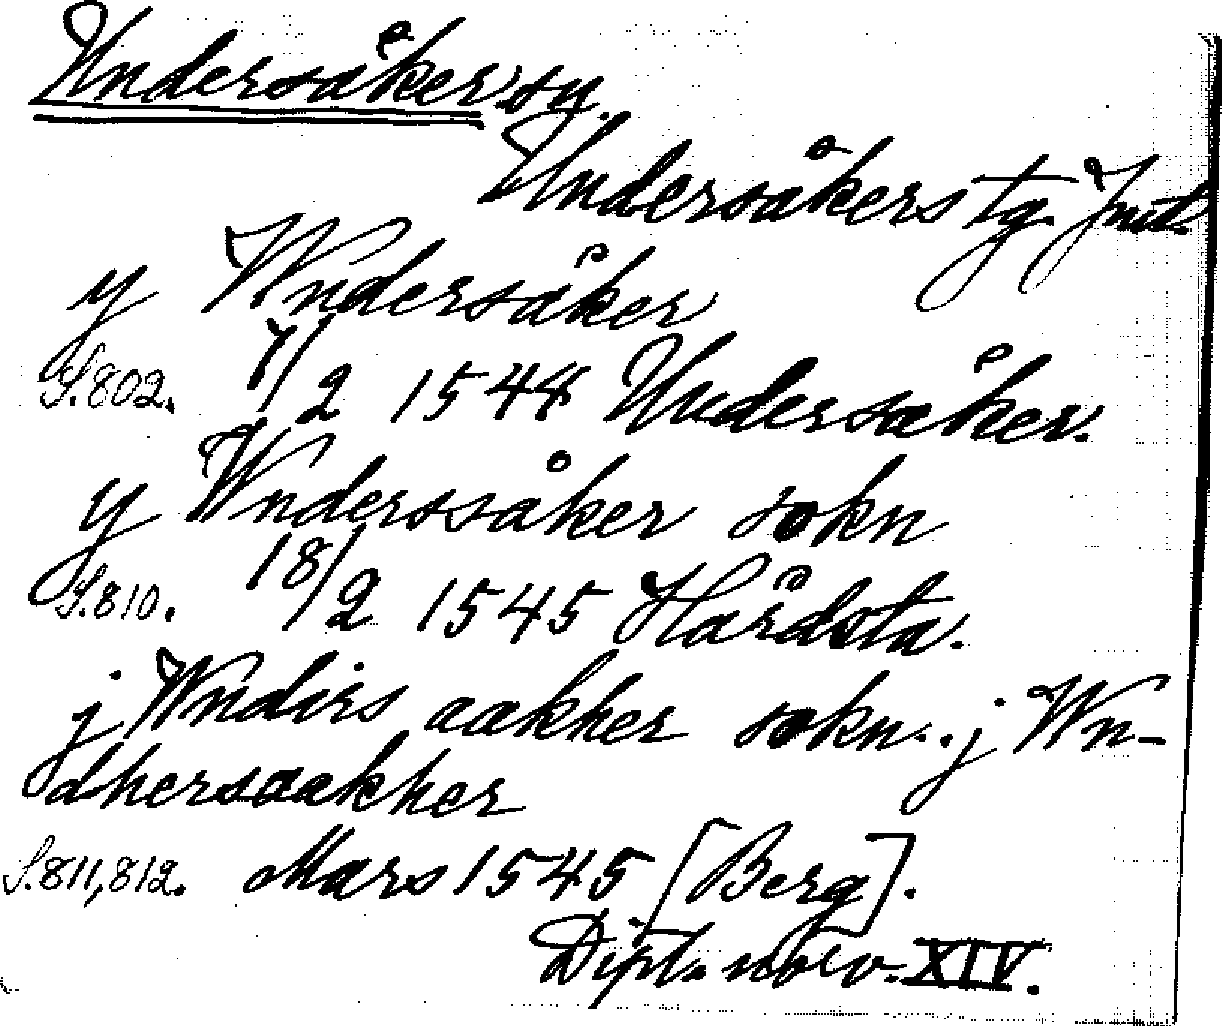 Undersåker sn
Undersåkers tg. Jmt.
y Wndersåker
S. 802. 7/2 1544 Undersåker.
y Wnderssåker sokn
S. 810. 18/2 1545 Hårdsta.
j Wndirs aakher sokn. . j Wn-
dhersaakher
S. 811, 812. Mars 1545 [Berg].
Dipl. norv. XIV.